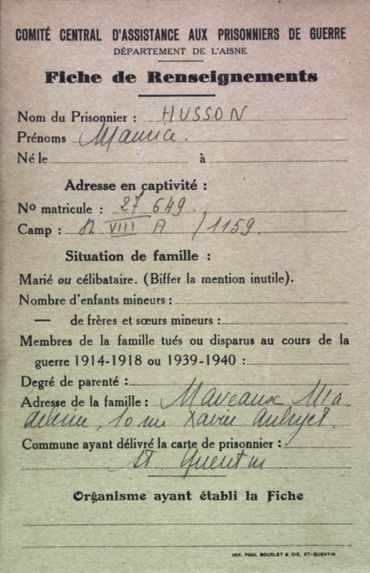 COMITÉ CENTRAL D'ASSISTANCE AUX PRISONNIERS DE GUERRE
DÉPARTEMENT DE L'AISNE
Fiche de Renseignements
Nom du Prisonnier : HUSSON
Prénoms Maurice.
Né le à
Adresse en captivité :
No matricule : 27 649.
Camp : VIII A /1159.
Situation de famille :
Marié ou célibataire. (Biffer la mention inutile).
Nombre d'enfants mineurs :
— de frères et sœurs mineurs :
Membres de la famille tués ou disparus au cours de la
guerre 1914-1918 ou 1939-1940 :
Degré de parenté :
Adresse de la famille : Maveaux Ma
deleine, 10 rue Xavier Aubryet.
Commune ayant délivré la carte de prisonnier :
St Quentin
Organisme ayant établi la Fiche
IMP. PAUL BOURLET & CIE, ST-QUENTIN